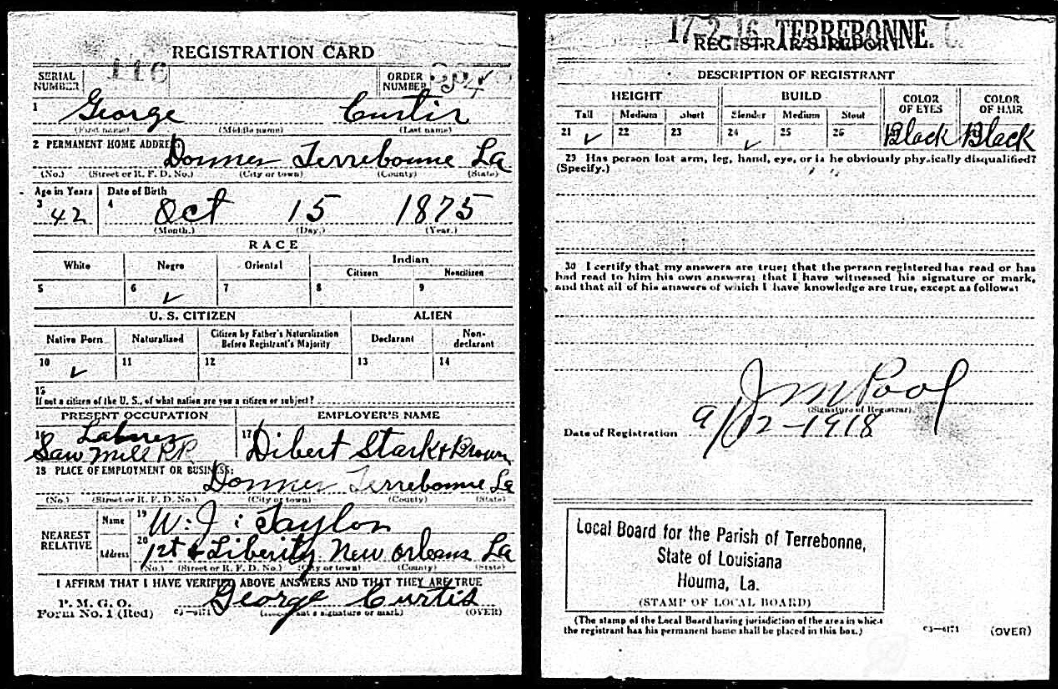 REGISTRATION CARD
SERIAL NUMBER 116 ORDER NUMBER
1 George Curtis
(First name) (Middle name) (Last name)
2 PERMANENT HOME ADDRESS: Donner Terrebonne La
(No.) (Street or R. F. D. No.) (City or town) (County) (State)
Age in Years Date of Birth
3 42 4 Oct 15 1875
(Month.) (Day.) (Year.)
RACE
White Negro Oriental Indian
Citizen Noncitizen
5 6 ✓ 7 8 9
U. S. CITIZEN ALIEN
Native Born Naturalized Citizen by Father's Naturalization Before Registrant's Majority Declarant Non-declarant
10 ✓ 11 12 13 14
15
If not a citizen of the U. S., of what nation are you a citizen or subject?
PRESENT OCCUPATION EMPLOYER'S NAME
16 Laborer 17
Saw Mill RR Dibert Stark & Brown
18 PLACE OF EMPLOYMENT OR BUSINESS:
Donner Terrebonne La
(No.) (Street or R. F. D. No.) (City or town) (County) (State)
NEAREST RELATIVE Name 19 W. J. Taylor
Address 20 1st & Liberity New Orleans La
(No.) (Street or R. F. D. No.) (City or town) (County) (State)
I AFFIRM THAT I HAVE VERIFIED ABOVE ANSWERS AND THAT THEY ARE TRUE
P. M. G. O.
Form No. 1 (Red) 03—6171 George Curtis (OVER)
(Registrant's signature or mark)
17-2-16 TERREBONNE.
REGISTRAR'S REPORT
DESCRIPTION OF REGISTRANT
HEIGHT BUILD COLOR OF EYES COLOR OF HAIR
Tall Medium Short Slender Medium Stout
21 ✓ 22 23 24 ✓ 25 26 Black Black
29 Has person lost arm, leg, hand, eye, or is he obviously physically disqualified?
(Specify.)
30 I certify that my answers are true; that the person registered has read or has
had read to him his own answers; that I have witnessed his signature or mark,
and that all of his answers of which I have knowledge are true, except as follows:
J M Pool
(Signature of Registrar)
Date of Registration 9/12-1918
Local Board for the Parish of Terrebonne,
State of Louisiana
Houma, La.
(STAMP OF LOCAL BOARD)
(The stamp of the Local Board having jurisdiction of the area in which
the registrant has his permanent home shall be placed in this box.)
03—6171 (OVER)